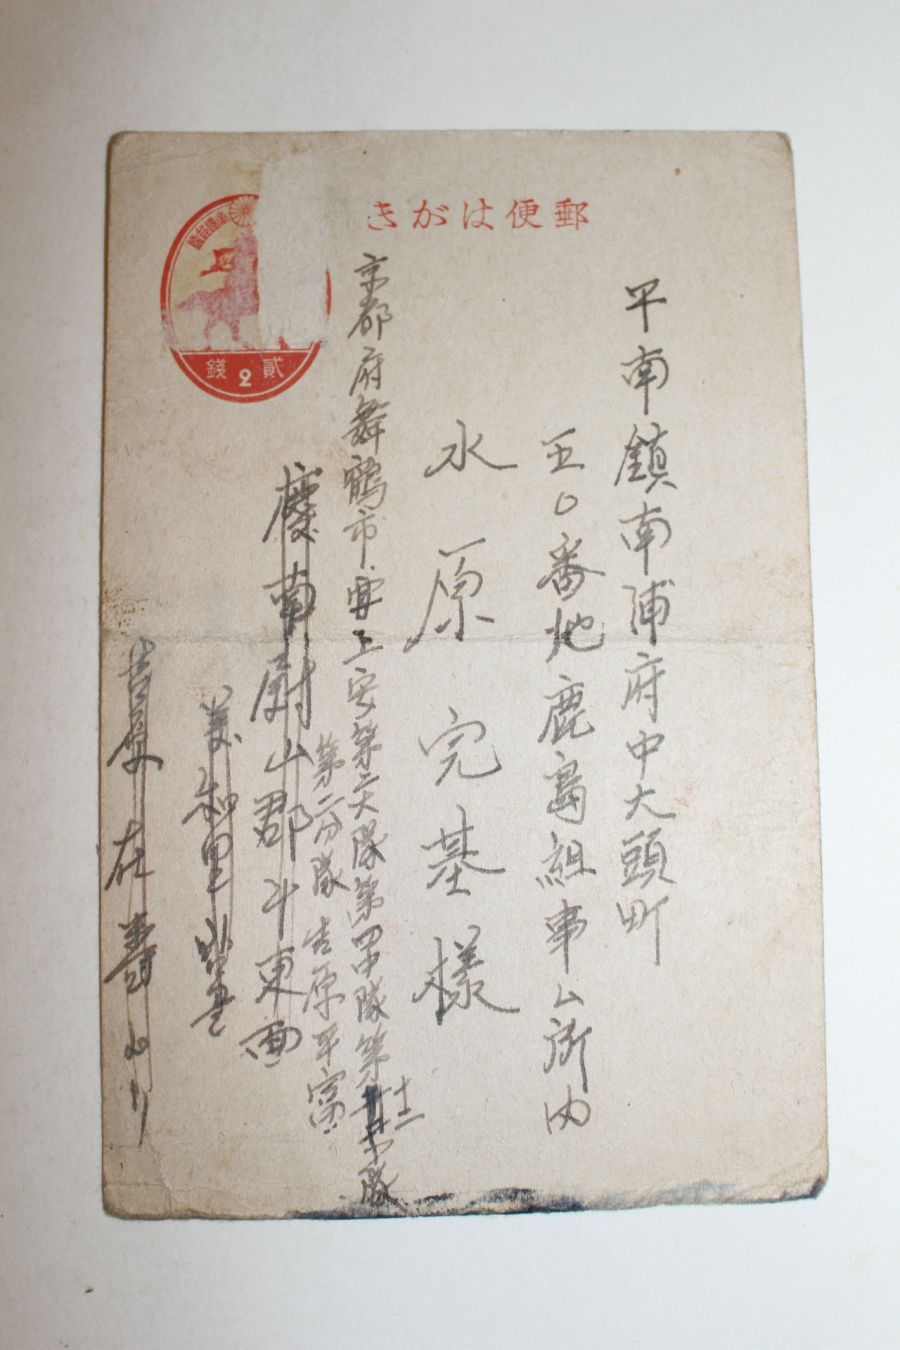 郵便はがき
貳2錢
平南鎮南浦府中大頭町
五〇番地鹿島組事ム所内
水原完基様
京都府舞鶴市字上安第六大隊第四中隊第
第二分隊 吉原平富
慶南蔚山郡斗東面
吉原在壽ヨリ